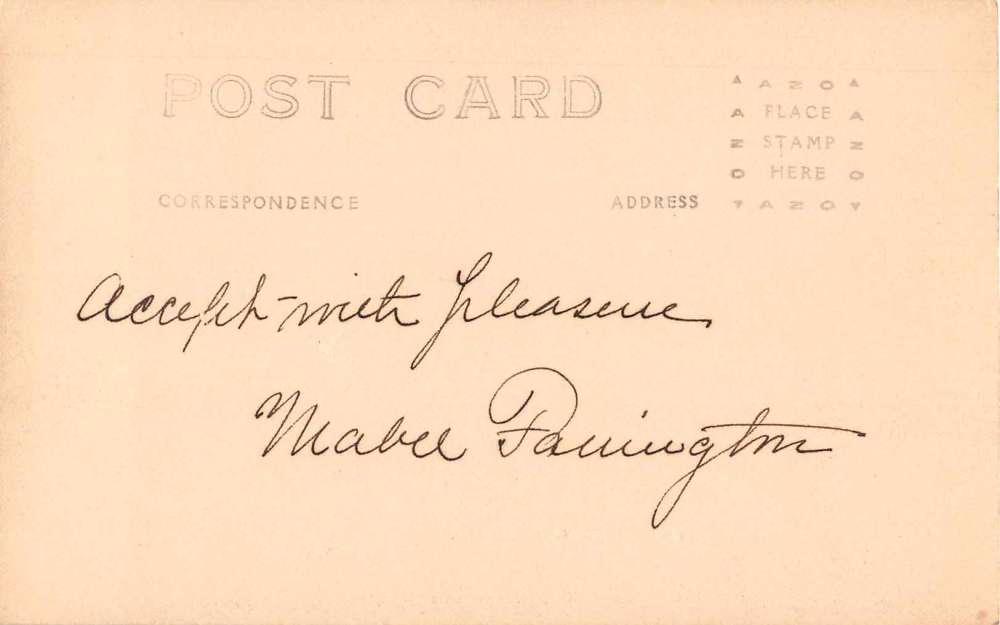 POST CARD
AZO
PLACE
STAMP
HERE
AZO
AZO
AZO
CORRESPONDENCE
ADDRESS
Accept with pleasure
Mabel Farrington